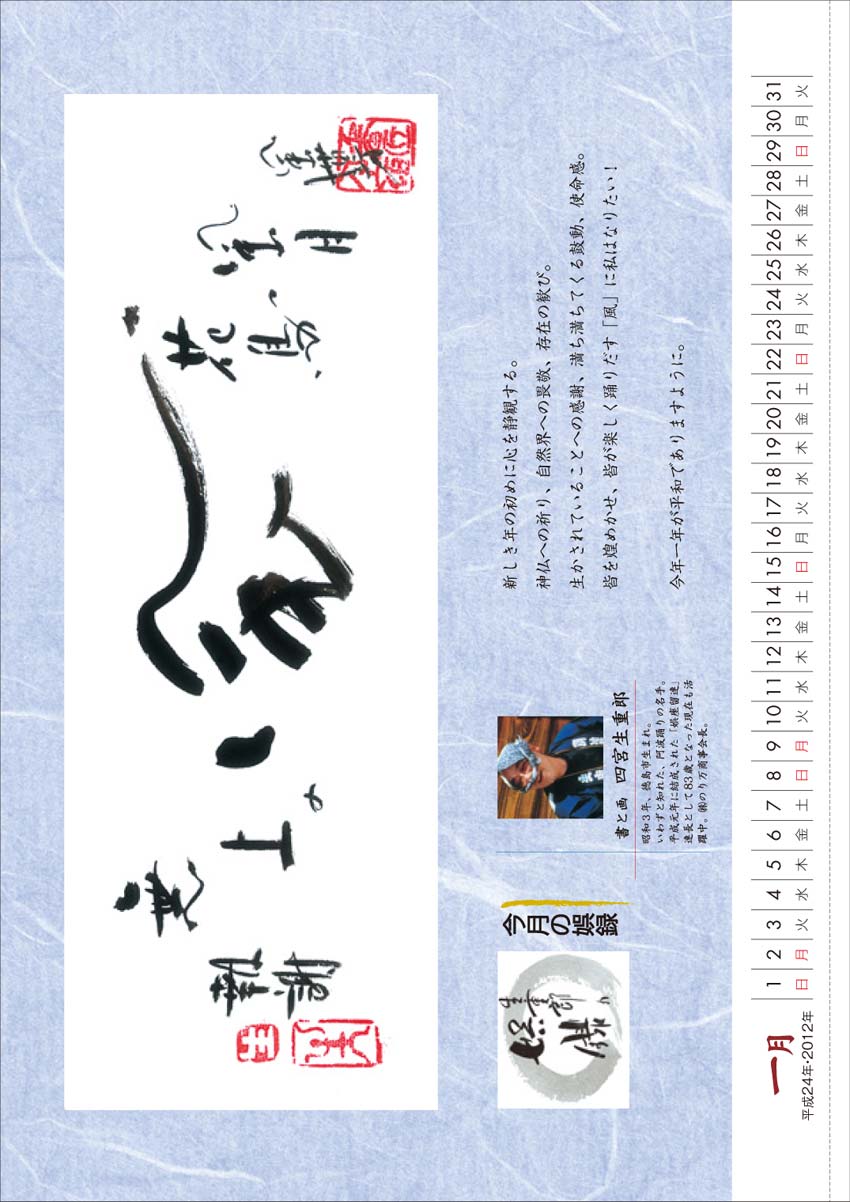 今月の娯録
生重郎の
娯録
書と画 四宮生重郎
昭和3年、徳島市生まれ。
いわずと知れた、阿波踊りの名手。
平成元年に結成された「娯座留連」
連長として83歳となった現在も活
躍中。㈱のり万商事会長。
新しき年の初めに心を静観する。
神仏への祈り、自然界への畏敬、存在の歓び。
生かされていることへの感謝、満ち満ちてくる鼓動、使命感。
皆を煌めかせ、皆が楽しく踊りだす「風」に私はなりたい!
今年一年が平和でありますように。
一月
平成24年・2012年
1 2 3 4 5 6 7 8 9 10 11 12 13 14 15 16 17 18 19 20 21 22 23 24 25 26 27 28 29 30 31
日 月 火 水 木 金 土 日 月 火 水 木 金 土 日 月 火 水 木 金 土 日 月 火 水 木 金 土 日 月 火